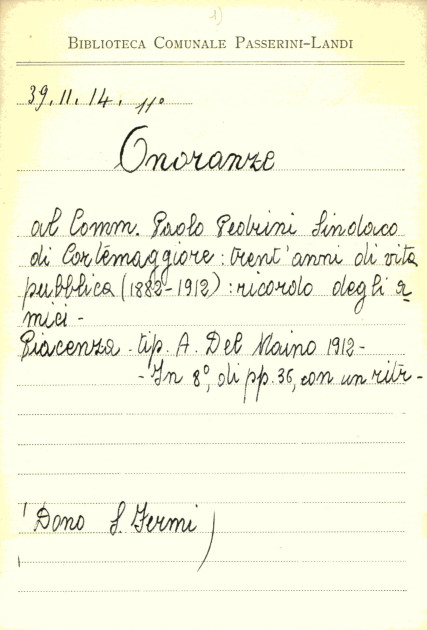 1)
BIBLIOTECA COMUNALE PASSERINI-LANDI
39. II. 14. 11º
Onoranze
al Comm. Paolo Pedrini Sindaco
di Cortemaggiore: trent'anni di vita
pubblica (1882-1912): ricordo degli a
mici -
Piacenza - tip. A. Del Maino 1912 -
- In 8º, di pp. 36, con un ritr -
(Dono S. Fermi)